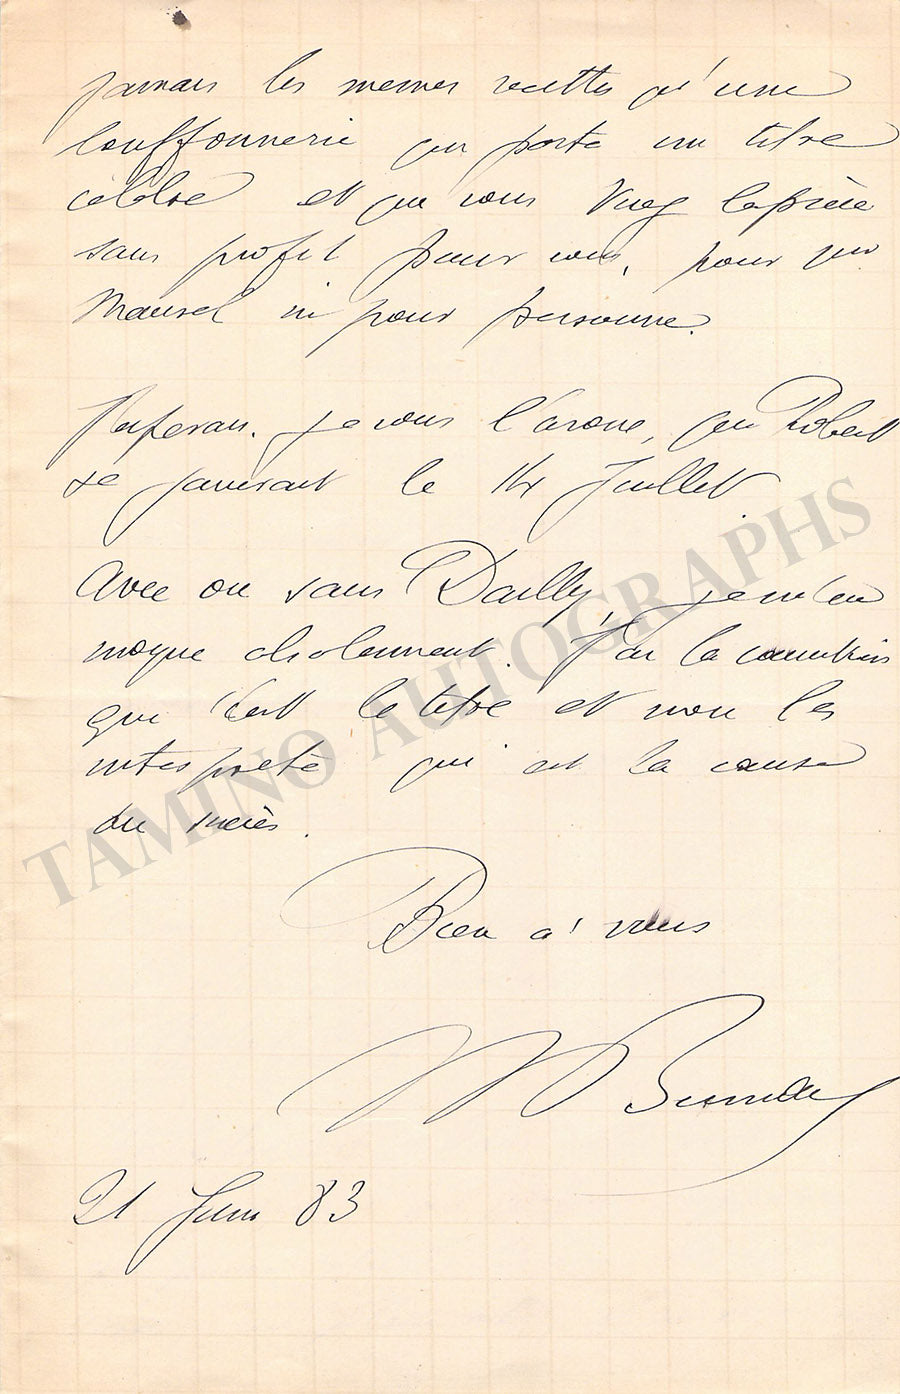 jamais les memes recettes qu'une
bouffonnerie qui porte un titre
célèbre et que vous tuez la pièce
sans profit pour vous, pour
ni pour personne.
je vous l'avoue, que Robert
se jouerait le 14 Juillet
Avec ou sans Dailly, je m'en
moque absolument. J'ai la conviction
que c'est le titre et non les
interprete qui est la cause
du succès.
Bien a' vous
W Busnach
21 Juin 83
TAMINO AUTOGRAPHS